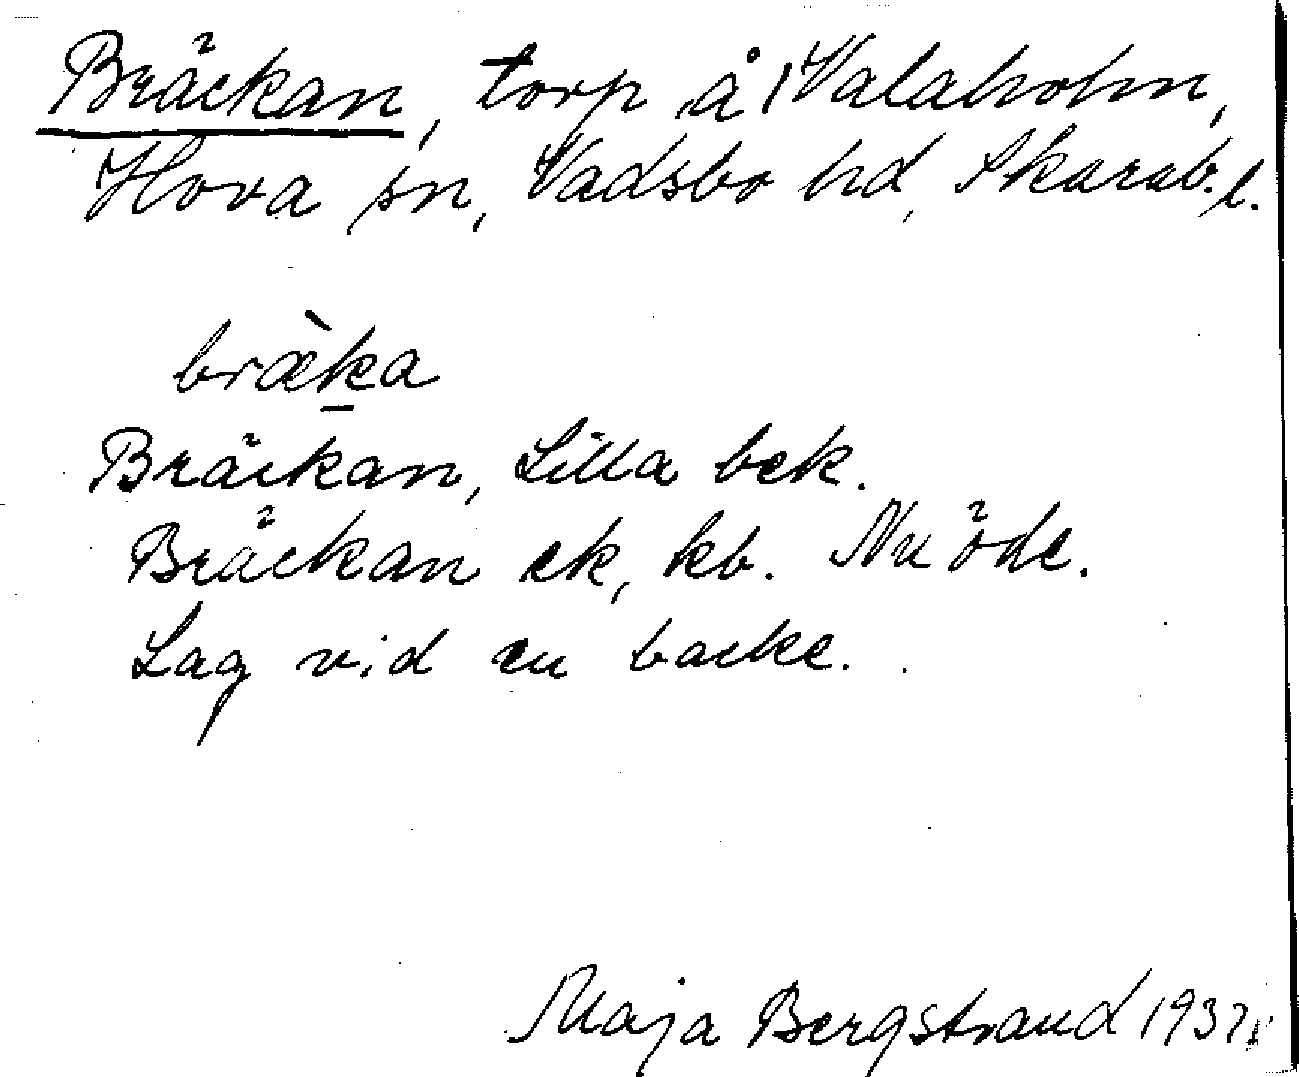 Bräckan, torp å Valaholm,
Hova sn, Vadsbo hd, Skarab. l.
bræ̀ḵa
Bräckan, Lilla bek.
Bräckan ek, kb. Nu öde.
Låg vid en backe.
Maja Bergstrand 1937